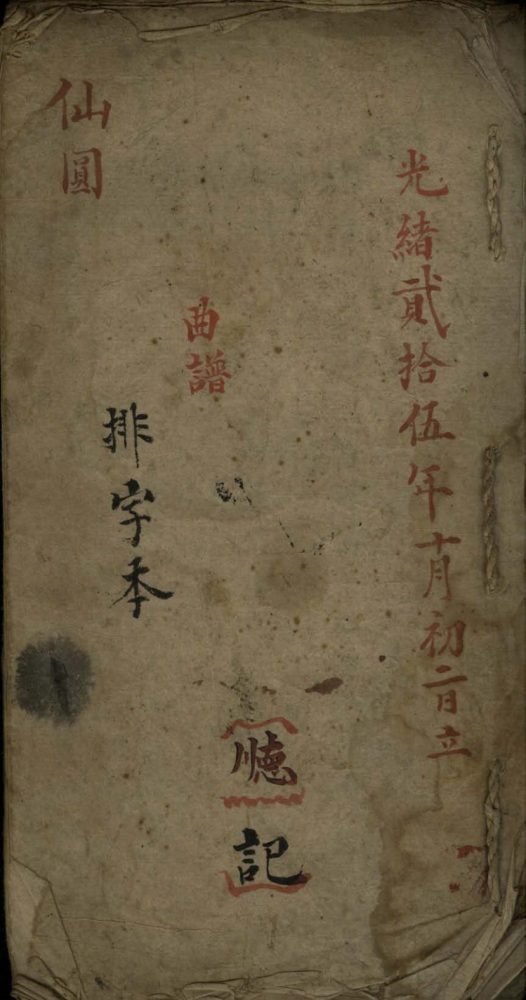 光緒貳拾伍年十月初二日立
曲譜
記
排字本
仙圓